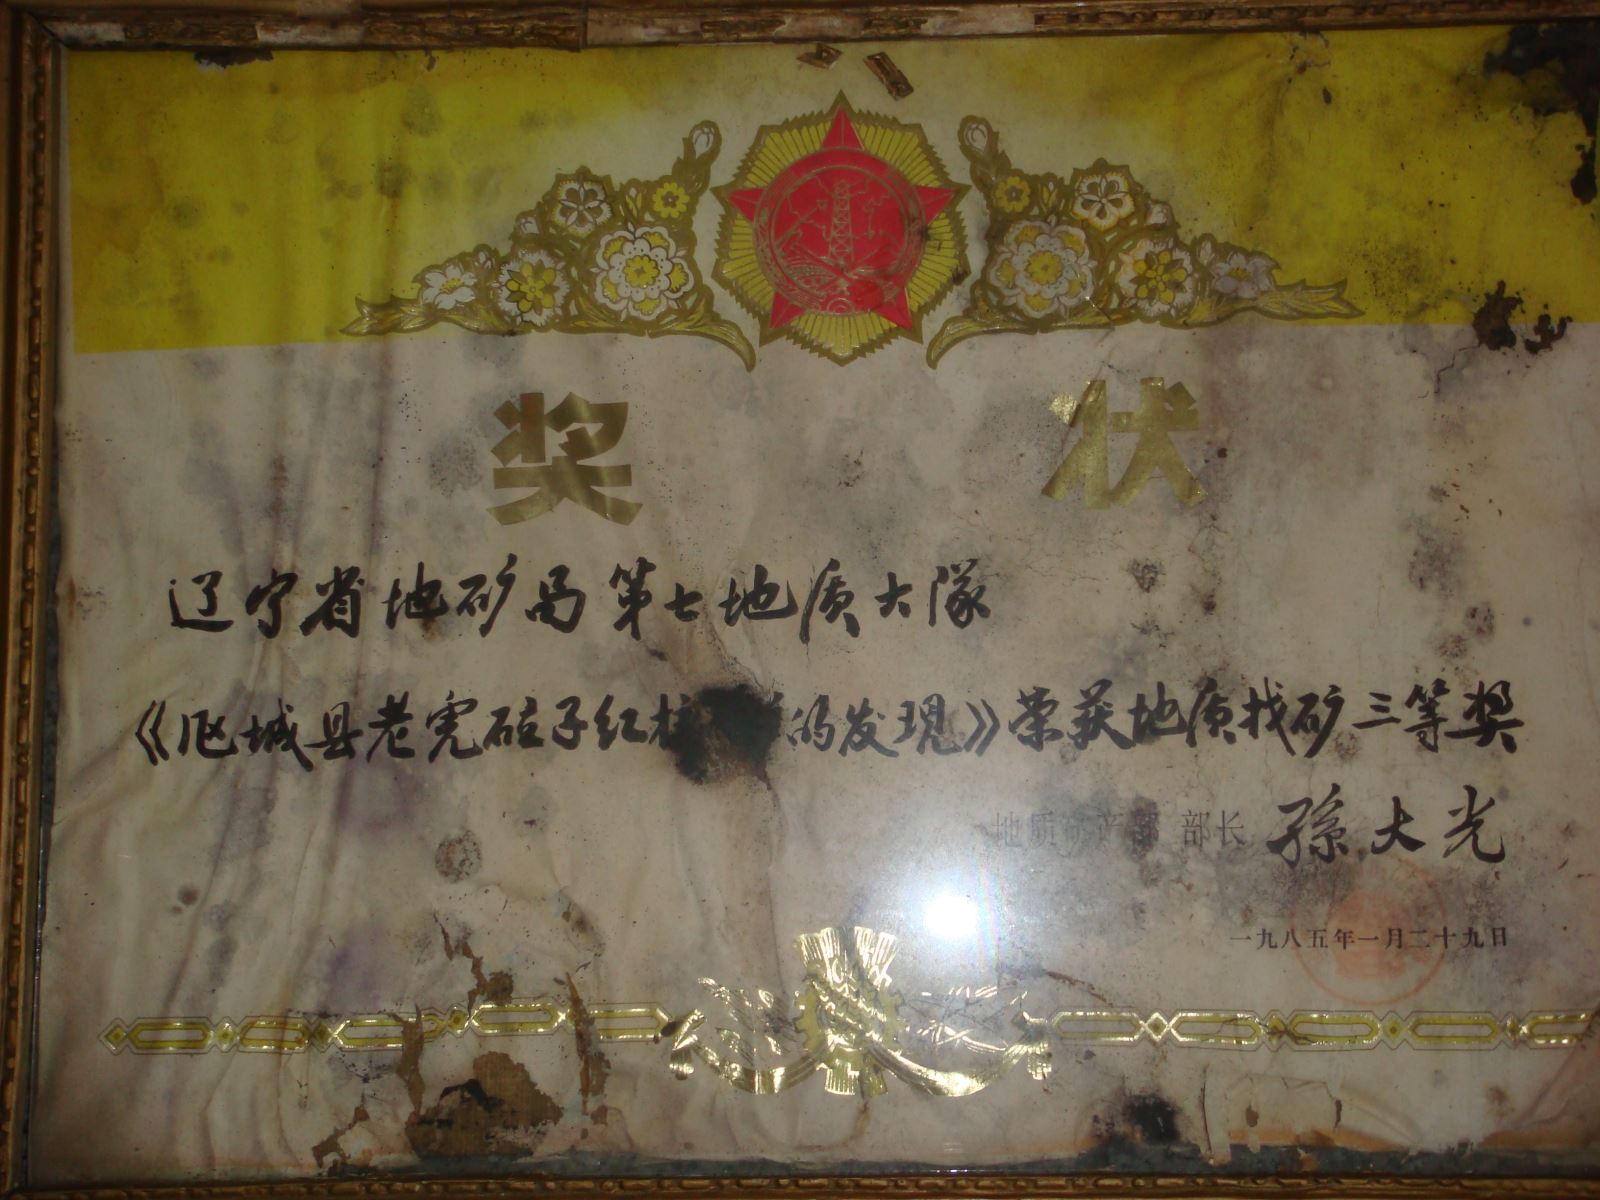 奖状
辽宁省地矿局第七地质大隊
《凤城县老宪砬子红柱的发現》荣获地质找矿三等奖
地质矿产部 部长 孫大光
一九八五年一月二十九日